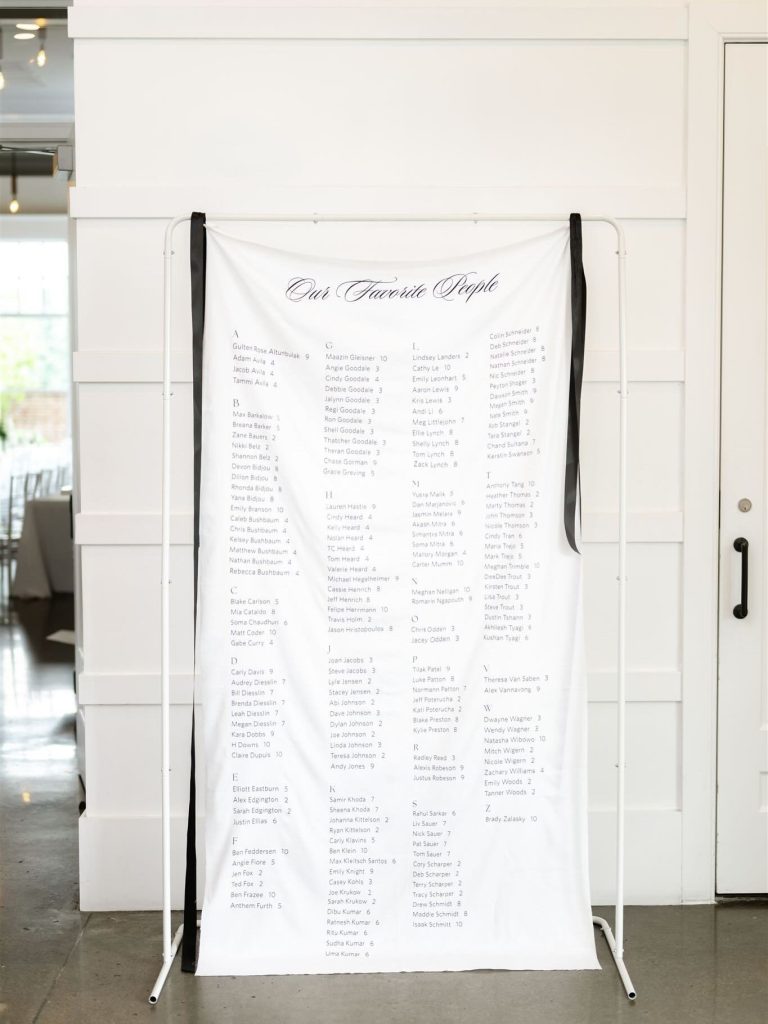 Our Favorite People
A
Gulten Rose Altunbulak 9
Adam Avila 4
Jacob Avila 4
Tammi Avila 4
B
Max Barkalow 5
Breana Barker 5
Zane Bauers 2
Nikki Belz 2
Shannon Belz 2
Devon Bidjou 8
Dillon Bidjou 8
Rhonda Bidjou 8
Yana Bidjou 8
Emily Branson 10
Caleb Bushbaum 4
Chris Bushbaum 4
Kelsey Bushbaum 4
Matthew Bushbaum 4
Nathan Bushbaum 4
Rebecca Bushbaum 4
C
Blake Carlson 5
Mia Cataldo 8
Soma Chaudhuri 6
Matt Coder 10
Gabe Curry 4
D
Carly Davis 9
Audrey Diesslin 7
Bill Diesslin 7
Brenda Diesslin 7
Leah Diesslin 7
Megan Diesslin 7
Kara Dobbs 9
H Downs 10
Claire Dupuis 10
E
Elliott Eastburn 5
Alex Edgington 2
Sarah Edgington 2
Justin Ellias 6
F
Ban Feddersen 10
Angie Fiore 5
Jen Fox 2
Ted Fox 2
Ben Frazee 10
Anthem Furth 5
G
Maazin Gleisner 10
Angie Goodale 3
Cindy Goodale 4
Debbie Goodale 3
Jalynn Goodale 3
Regi Goodale 3
Ron Goodale 3
Shell Goodale 3
Thatcher Goodale 3
Theran Goodale 3
Chase Gorman 9
Gracie Greving 5
H
Lauren Hastie 9
Cindy Heard 4
Kelly Heard 4
Nolan Heard 4
TC Heard 4
Tom Heard 4
Valerie Heard 4
Michael Hegelheimer 9
Cassie Henrich 8
Jeff Henrich 8
Felipe Herrmann 10
Travis Holm 2
Jason Hristopoulos 8
J
Joan Jacobs 3
Steve Jacobs 3
Lyle Jensen 2
Stacey Jensen 2
Abi Johnson 2
Dave Johnson 3
Dylan Johnson 2
Joe Johnson 2
Linda Johnson 3
Teresa Johnson 2
Andy Jones 9
K
Samir Khoda 7
Sheena Khoda 7
Johanna Kittelson 2
Ryan Kittelson 2
Carly Klavins 5
Ben Klein 10
Max Kleitsch Santos 6
Emily Knight 9
Casey Kohls 3
Joe Krukow 2
Sarah Krukow 2
Dibu Kumar 6
Ratnesh Kumar 6
Ritu Kumar 6
Sudha Kumar 6
Uma Kumar 6
L
Lindsey Landers 2
Cathy Le 10
Emily Leonhart 5
Aaron Lewis 9
Kris Lewis 3
Andi Li 6
Meg Littlejohn 7
Ellie Lynch 8
Shelly Lynch 8
Tom Lynch 8
Zack Lynch 8
M
Yusra Malik 3
Dan Marjanovic 6
Jasmin Melara 9
Akash Mitra 6
Simantra Mitra 6
Soma Mitra 6
Mallory Morgan 4
Carter Mumm 10
N
Meghan Nelligan 10
Romarin Ngaputh 9
O
Chris Odden 3
Jacey Odden 3
P
Tilak Patel 9
Luke Patton 8
Normann Patton 7
Jeff Poterucha 2
Kati Poterucha 2
Blake Preston 8
Kylie Preston 8
R
Radley Reed 3
Alexis Robeson 9
Justus Robeson 9
S
Rahul Sarkar 6
Liv Sauer 7
Nick Sauer 7
Pat Sauer 7
Tom Sauer 7
Cory Scharper 2
Deb Scharper 2
Terry Scharper 2
Tracy Scharper 2
Drew Schmidt 8
Maddie Schmidt 8
Isaak Schmitt 10
Colin Schneider 8
Deb Schneider 8
Natalie Schneider 8
Nathan Schneider 8
Nic Schneider 8
Peyton Shoger 3
Dawson Smith 9
Megan Smith 9
Nate Smith 9
Rob Stangel 2
Tara Stangel 2
Chand Sultana 7
Kerstin Swanson 5
T
Anthony Tang 10
Heather Thomas 2
Marty Thomas 2
John Thomson 3
Nicole Thomson 3
Cindy Tran 6
Maria Trejo 5
Mark Trejo 5
Meghan Trimble 10
DeeDee Trout 3
Kirsten Trout 3
Lisa Trout 3
Steve Trout 3
Dustin Tsharin 3
Akhilesh Tyagi 6
Kushan Tyagi 6
V
Theresa Van Saben 3
Alex Vannavong 9
W
Dwayne Wagner 3
Wendy Wagner 3
Natasha Wibowo 10
Mitch Wigern 2
Nicole Wigern 2
Zachary Williams 4
Emily Woods 2
Tanner Woods 2
Z
Brady Zalasky 10